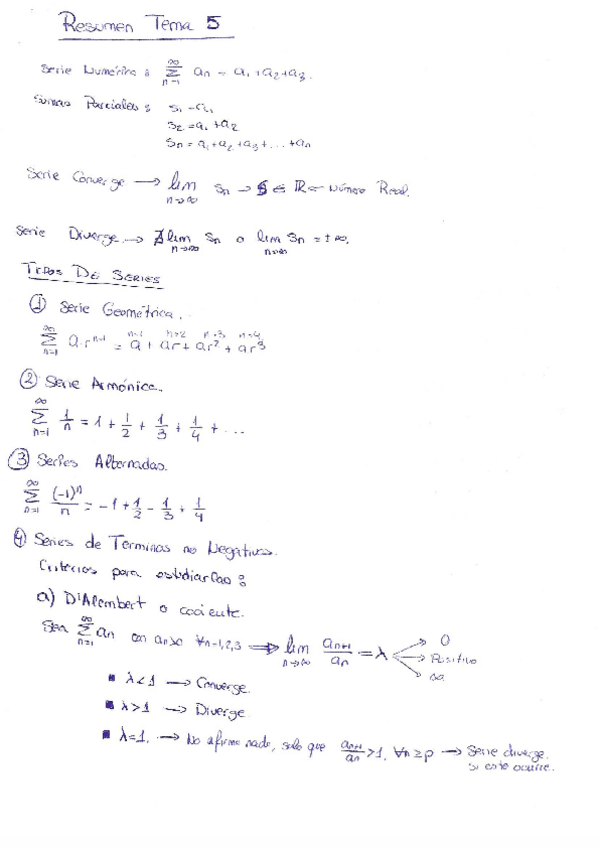 Resumen Tema 5
Serie Numérica : ∞ Σ n=1 an = a1 + a2 + a3.
Sumas Parciales : s1 = a1
s2 = a1 + a2
sn = a1 + a2 + a3 + ... + an
Serie Converge → lim n→∞ sn → S ∈ ℝ = Número Real.
Serie Diverge → ∄ lim n→∞ Sn o lim n→∞ Sn = ±∞.
TIPOS DE SERIES
① Serie Geométrica.
n=1 n=2 n=3 n=4
∞ Σ n=1 a·r^(n-1) = a + ar + ar² + ar³
② Serie Armónica.
∞ Σ n=1 1/n = 1 + 1/2 + 1/3 + 1/4 + ...
③ Series Alternadas.
∞ Σ n=1 (-1)^n/n = -1 + 1/2 - 1/3 + 1/4
④ Series de Terminos no Negativos.
Criterios para estudiarlas :
a) D'Alembert o cociente.
Sea ∞ Σ n=1 an con an>0 ∀n=1,2,3 ⟹ lim n→∞ an+1/an = λ → 0
→ Positivo
→ ∞
▪ λ<1 → Converge.
▪ λ>1 → Diverge.
▪ λ=1. → No afirma nada, solo que an+1/an >1, ∀n≥p → Serie diverge.
si esto ocurre.